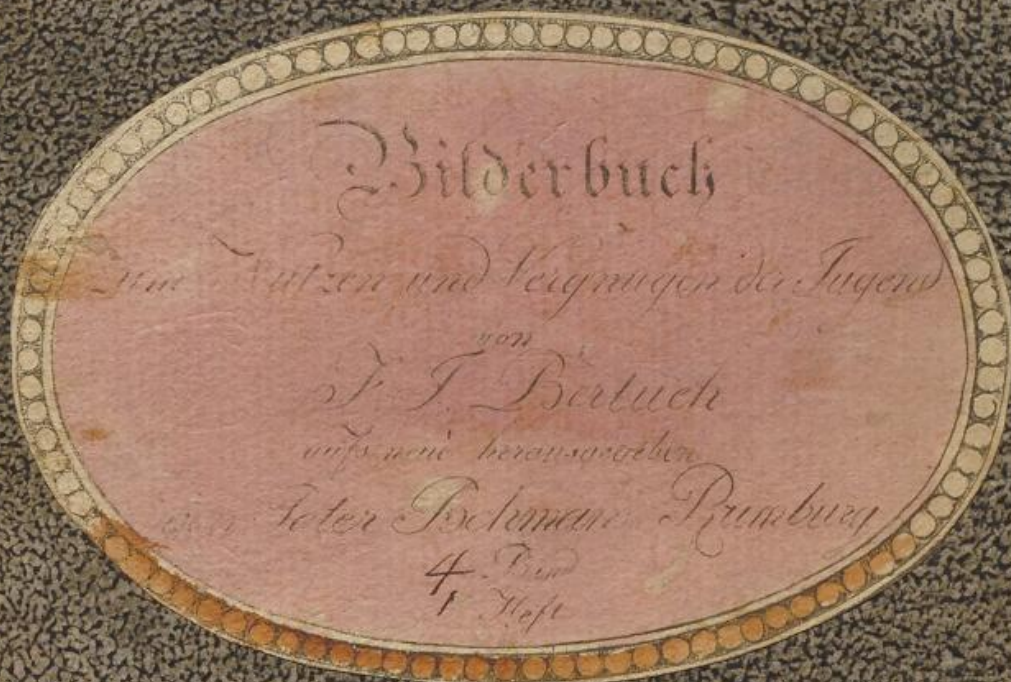 Bilderbuch
Zum Nutzen und Vergnugen der Jugend
von
F. J. Bertuch
aufs neue herausgegeben
von Peter Bohmann Rumburg
4 Band
1 Heft